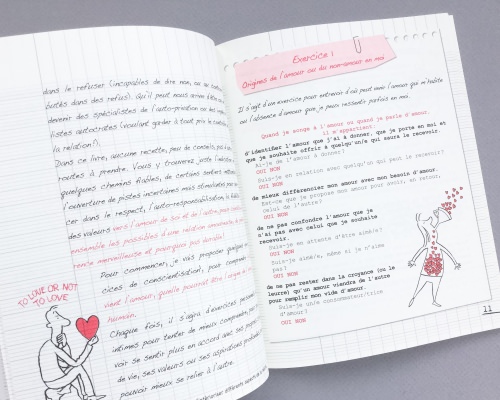 dans le refuser (incapables de dire non, ou au
butés dans des refus). Qu'il peut nous arriver
devenir des spécialistes de l'auto-privation ou des
listes autocrates (voulant garder à tout prix le
la relation!).
Dans ce livre, aucune recette, peu de conseils, pas
routes à prendre. Vous y trouverez juste
quelques chemins fiables, de certains sentiers
l'ouverture de pistes incertaines mais stimulantes pour
cer dans le respect, l'auto-responsabilisation, la
des valeurs vers l'amour de soi et de l'autre, pour
ensemble les possibles d'une relation amoureuse
rence merveilleuse et pourquoi pas durable!
Pour commencer, je vais proposer quelques
cices de conscientisation, pour
vient l'amour, quelle pourrait être l'origine
humain.
Chaque fois, il s'agira d'exercices personnels
intimes pour tenter de mieux comprendre, pour
voir se sentir plus en accord avec ses
de vie, ses valeurs ou ses aspirations
pouvoir mieux se relier à l'autre.
TO LOVE OR NOT
TO LOVE
Exercice 1
Origines de l'amour ou du non-amour en moi
Il s'agit d'un exercice pour entrevoir d'où peut venir l'amour qui m'habite
ou l'absence d'amour que je peux ressentir parfois en moi.
Quand je songe à l'amour ou quand je parle d'amour,
il m'appartient:
d'identifier l'amour que j'ai à donner, que je porte en moi et
que je souhaite offrir à quelqu'un qui saura le recevoir.
Ai-je de l'amour à donner?
OUI NON
Suis-je en relation avec quelqu'un qui peut le recevoir?
OUI NON
de mieux différencier mon amour avec mon besoin d'amour.
Est-ce que je propose mon amour pour avoir, en retour,
celui de l'autre?
OUI NON
de ne pas confondre l'amour que je
n'ai pas avec celui que je souhaite
recevoir.
Suis-je en attente d'être aimé/e?
OUI NON
Suis-je aimé/e, même si je n'aime
pas?
OUI NON
de ne pas rester dans la croyance (ou le
leurre) qu'un amour viendra de l'autre
pour remplir mon vide d'amour.
Suis-je un/e consommateur/trice
d'amour?
OUI NON
11